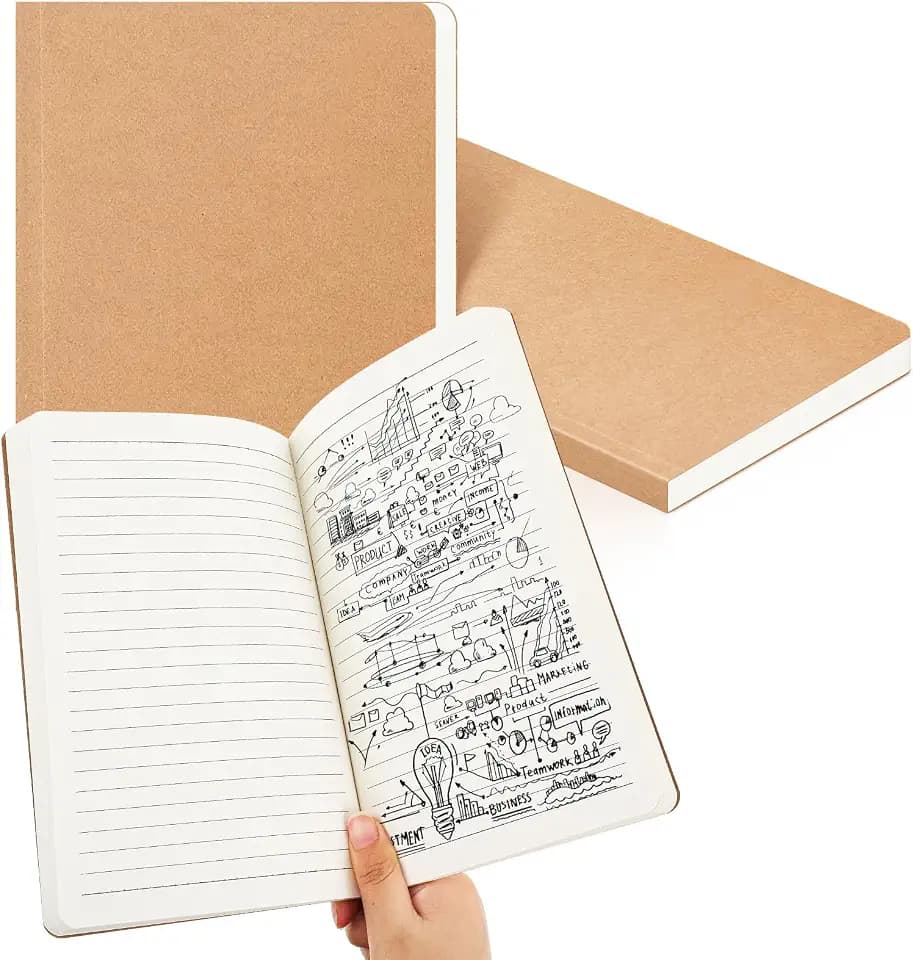 !!!
WEB
SALE
money
INCOME
CREATIVE
PRODUCT
WORK
Community
COMPANY
Teamwork
IDEA
TEAM
MARKETING
Product
SERVER
Information
IDEA
Teamwork
BUSINESS
STMENT